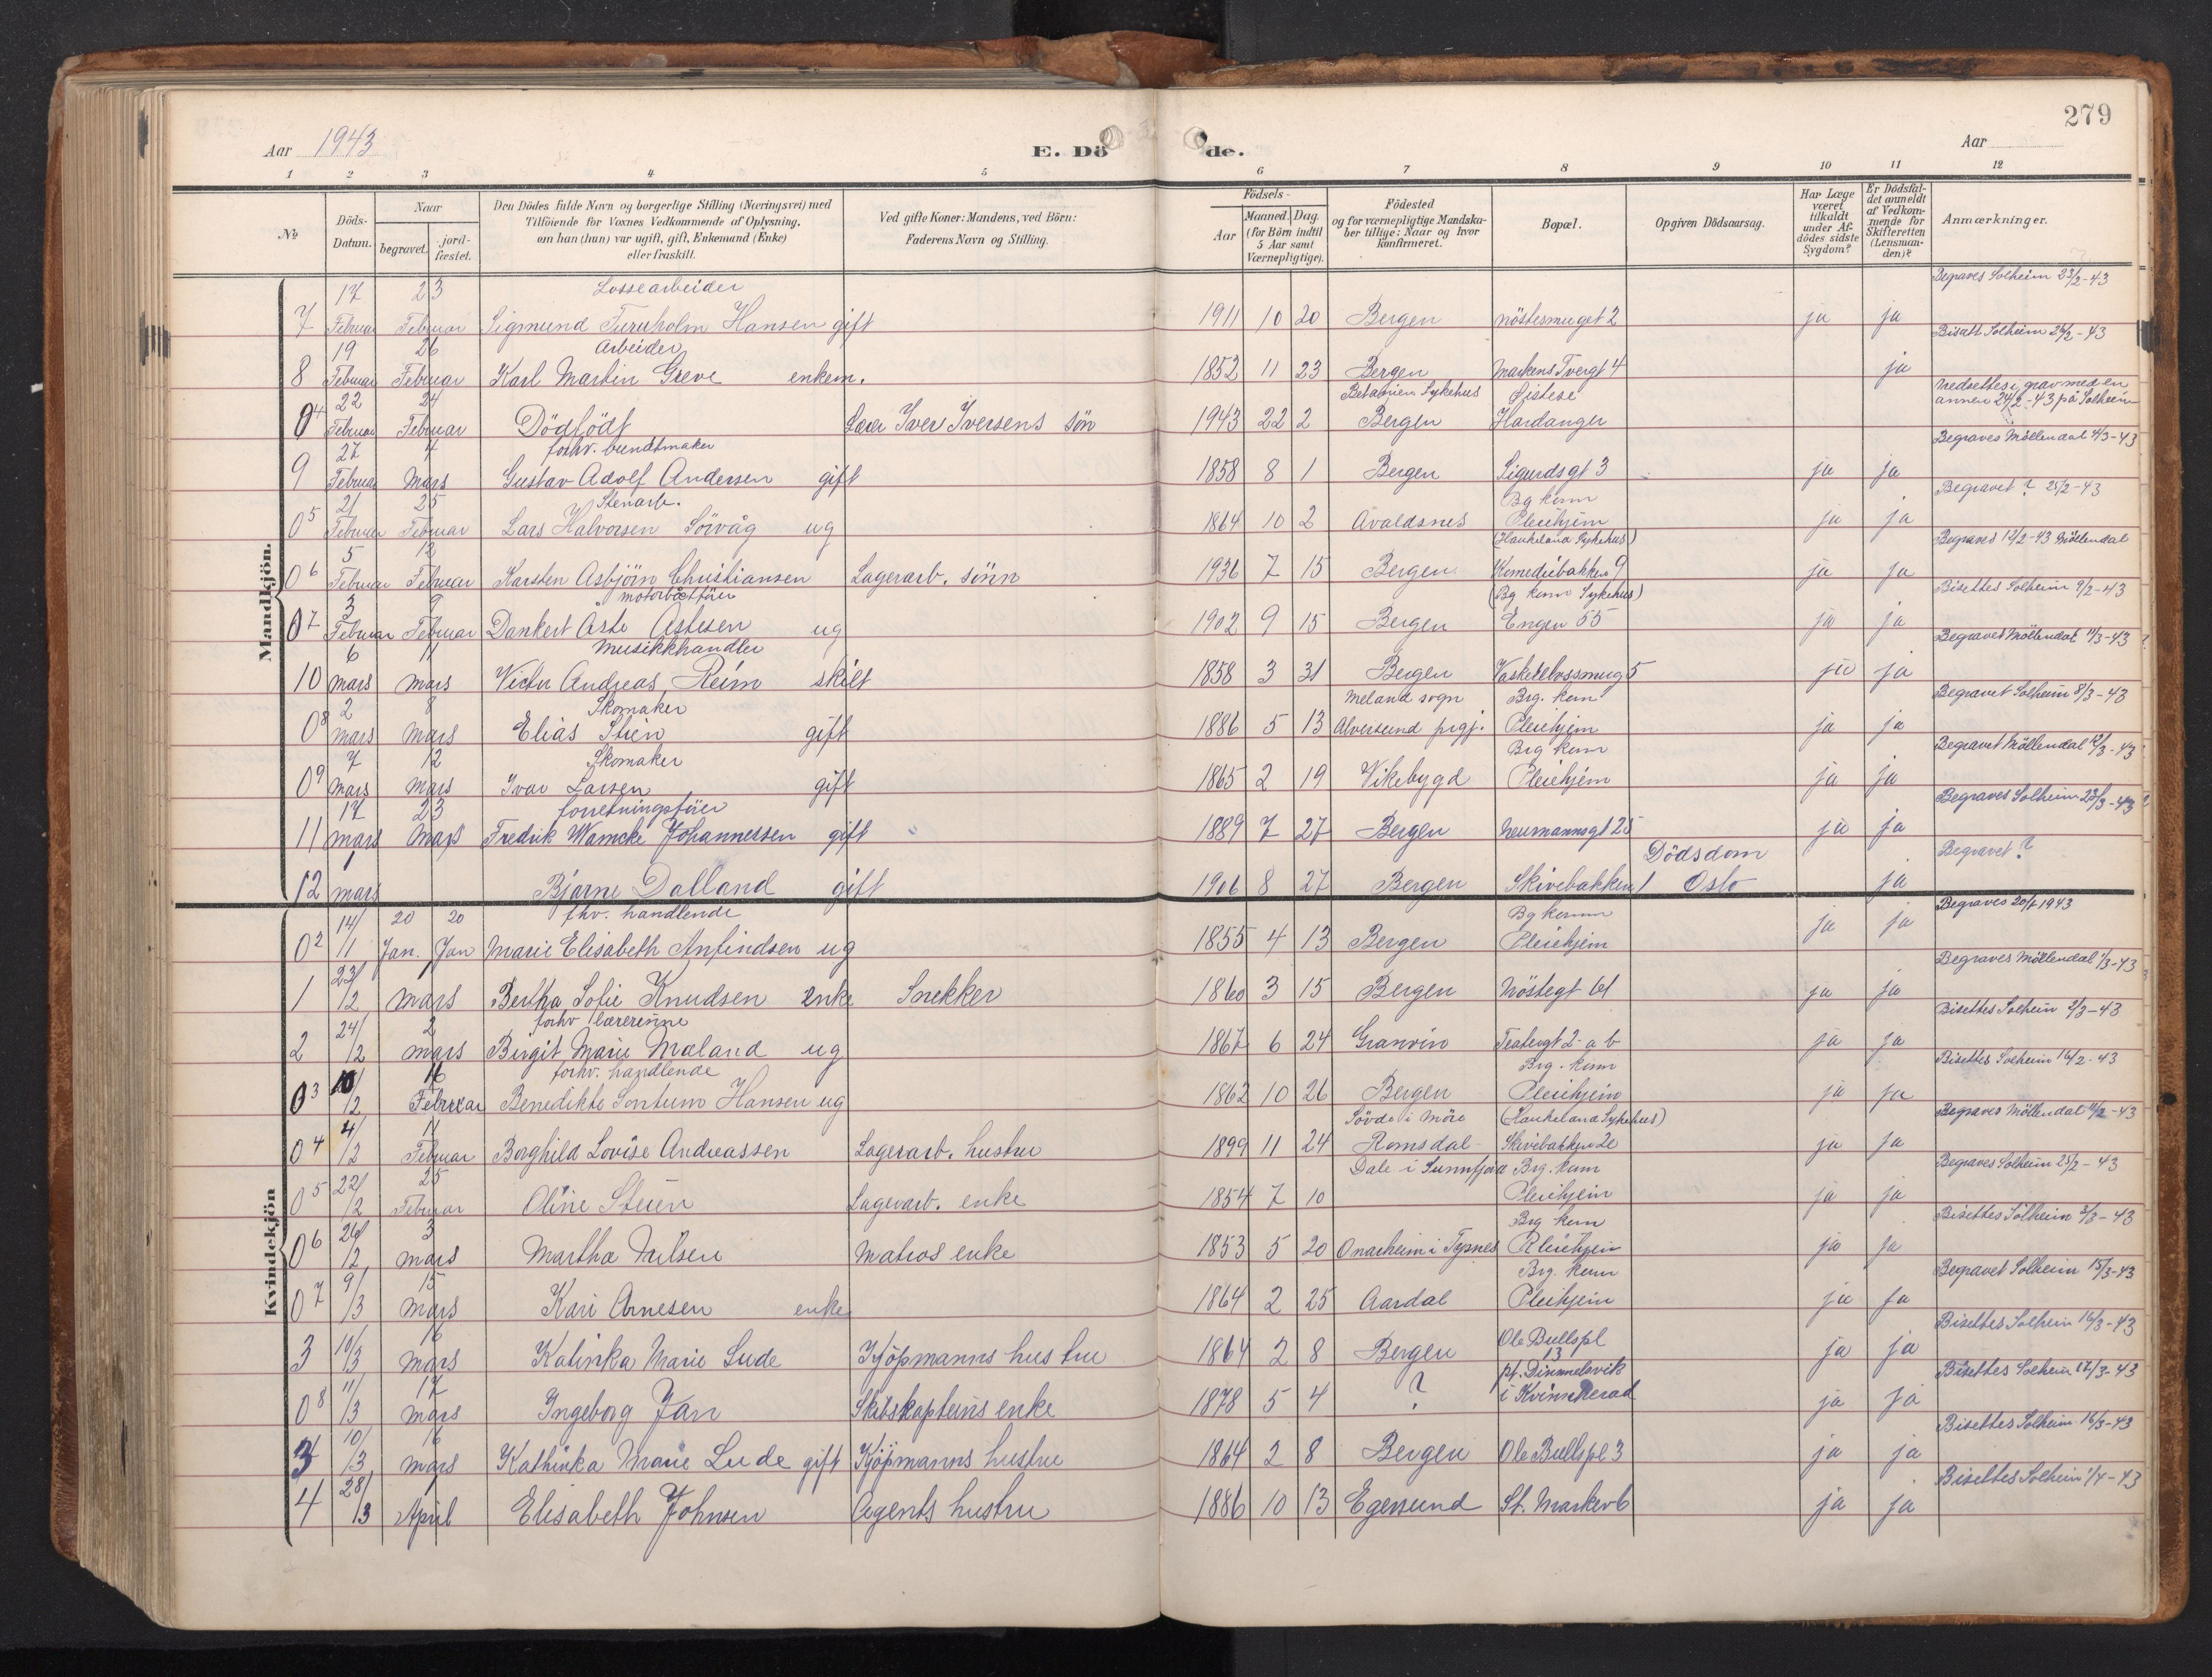 279
Aar 1943
E. Dö de.
Aar
1 2 3 4 5 6 7 8 9 10 11 12
No
Döds-Datum.
Naar
begravet.
jord-fæstet.
Den Dödes fulde Navn og borgerlige Stilling (Næringsvei) med
Tilföiende for Voxnes Vedkommende af Oplysning,
om han (hun) var ugift, gift, Enkemand (Enke)
eller fraskilt.
Ved gifte Koner: Mandens, ved Börn:
Faderens Navn og Stilling.
Födsels-
Aar
Maaned. Dag.
(for Börn indtil
5 Aar samt
Værnepligtige).
Födested
og for værnepligtige Mandska-
ber tillige: Naar og hvor
konfirmeret.
Bopæl.
Opgiven Dödsaarsag.
Har Læge
været
tilkaldt
under Af-
dödes sidste
Sygdom?
Er Dödsfal-
det anmeldt
af Vedkom-
mende for
Skifteretten
(Lensman-
den)?
Anmærkninger.
Mandkjön.
17 23 Lossearbeider Begraves Solheim 23/2-43
7 Februar Februar Sigmund Furuholm Hansen gift 1911 10 20 Bergen Nöstesmuget 2 ja ja
19 26 Arbeider Bisatt Solheim 26/2-43
8 Februar Februar Karl Martin Greve enkem. 1852 11 23 Bergen Markens Tvergt 4 ja
22 24 Betanien Sykehus Øistese Nedsettes i grav med en
annen 24/2-43 på Solheim
04 Februar Februar Dödfödt Lærer Iver Iversens sön 1943 22 2 Bergen Hardanger
27 4 forhv. bundtmaker Begraves Möllendal 4/3-43
9 Februar Mars Gustav Adolf Andersen gift 1858 8 1 Bergen Sigurdsgt 3 ja ja
21 25 Stenarb. Bg kom Begravet ? 25/2-43
05 Februar Februar Lars Halvorsen Sörvåg ug 1864 10 2 Avaldsnes Pleiehjem ja ja
5 12 (Haukeland Sykehus) Begraves 12/2-43 Möllendal
06 Februar Februar Karsten Asbjörn Christiansen Lagerarb. sönn 1936 7 15 Bergen Komediebakken 9 ja ja
3 9 (Bg kom Sykehus) Bisettes Solheim 9/2-43
07 Februar Februar Dankert ug 1902 9 15 Bergen Engen 55 ja ja
6 11 Musikkhandler Begraves Möllendal 11/3-43
10 Mars Mars Victor Andreas Reim skilt 1858 3 31 Bergen 5 ja ja
2 8 Skomaker Meland sogn Brg. kom Begravet Solheim 8/3-43
08 Mars Mars Elias Stien gift 1886 5 13 Alversund prgj. Pleiehjem ja ja
7 12 Skomaker Brg kom Begravet Möllendal 12/3-43
09 Mars Mars Ivar Larsen gift 1865 2 19 Vikebygd Pleiehjem ja ja
17 23 Begraves Solheim 23/3-43
11 Mars Mars Fredrik Wamcke Johannessen gift 1889 7 27 Bergen Neumannsgt 25 ja ja
1 Dödsdom Begravet?
12 Mars Bjarne Dalland gift 1906 8 27 Bergen Skivebakken 1 Oslo ja
Kvindekjön
14/ 20 20 fhv. handlende Bg komm Begraves 20/1 1943
02 /1 Jan. Jan Marie Elisabeth Anfindsen ug 1855 4 13 Bergen Pleiehjem ja ja
23/ Begraves Möllendal 1/3-43
1 /2 Mars Bertha Sofie Knudsen enke Snekker 1860 3 15 Bergen Nöstegt 61 ja ja
24/ 2 forhv lærerinne Bisettes Solheim 2/3-43
2 /2 Mars Birgit Marie Mæland ug 1867 6 24 Granvin Teatergt 2 a b ja ja
10/ 16 forhv. handlende Brg. kom Bisettes Solheim 16/2-43
03 /2 Februar Benedikte Sontum Hansen ug 1862 10 26 Bergen Pleiehjem ja ja
4/ 11 Sövde i Möre (Haukeland Sykehus) Begraves Möllendal 11/2-43
04 /2 Februar Borghild Lovise Andreassen Lagerarb. hustru 1899 11 24 Romsdal Skivebakken 2e ja ja
22/ 25 Dale i Sunnfjord Brg. kom Begraves Solheim 25/2-43
05 /2 Februar Oline Steen Lagerarb. enke 1854 7 10 Pleiehjem ja ja
26/ 3 Brg kom Bisettes Solheim 3/3-43
06 /2 Mars Martha Nilsen Matros enke 1853 5 20 Onarheim i Tysnes Pleiehjem ja ja
9/ 15 Brg. kom Begravet Solheim 15/3-43
07 /3 Mars Kari Arnesen enke 1864 2 25 Aardal Pleiehjem ja ja
10/ 16 Ole Bullspl Bisettes Solheim 16/3-43
3 /3 Mars Kalinka Marie Lude Kjöpmanns hustru 1864 2 8 Bergen 13 ja ja
11/ 17 pt. Dimmelsvik Bisettes Solheim 17/3-43
08 /3 Mars Ingeborg Jan Skibskapteins enke 1878 5 4 ? i Kvinnherad ja ja
10/ 16 Bisettes Solheim 16/3-43
3 /3 Mars Kathinka Marie Lude gift Kjöpmanns hustru 1864 2 8 Bergen Ole Bullspl 3 ja ja
28/ Bisettes Solheim 1/4-43
4 /3 April Elisabeth Johnsen Agents hustru 1886 10 13 Egersund St. Markev 6 ja ja